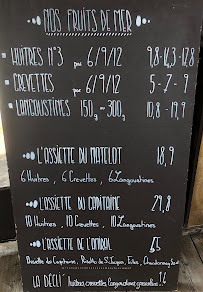 NOS FRUITS DE MER
HUÎTRES N°3 par 6/9/12 9,8-14,3-17,8
CREVETTES par 6/9/12 5-7-9
LANGOUSTINES 150g-300g 10,8-19,9
L'ASSIETTE DU MATELOT 18,9
6 Huîtres, 6 Crevettes, 6 Langoustines
L'ASSIETTE DU CAPITAINE 29,8
10 Huîtres, 10 Crevettes, 10 Langoustines
L'ASSIETTE DE L'AMIRAL
Assiette du Capitaine, St Jacques,
LA DÉGU' huîtres, crevettes, langoustines